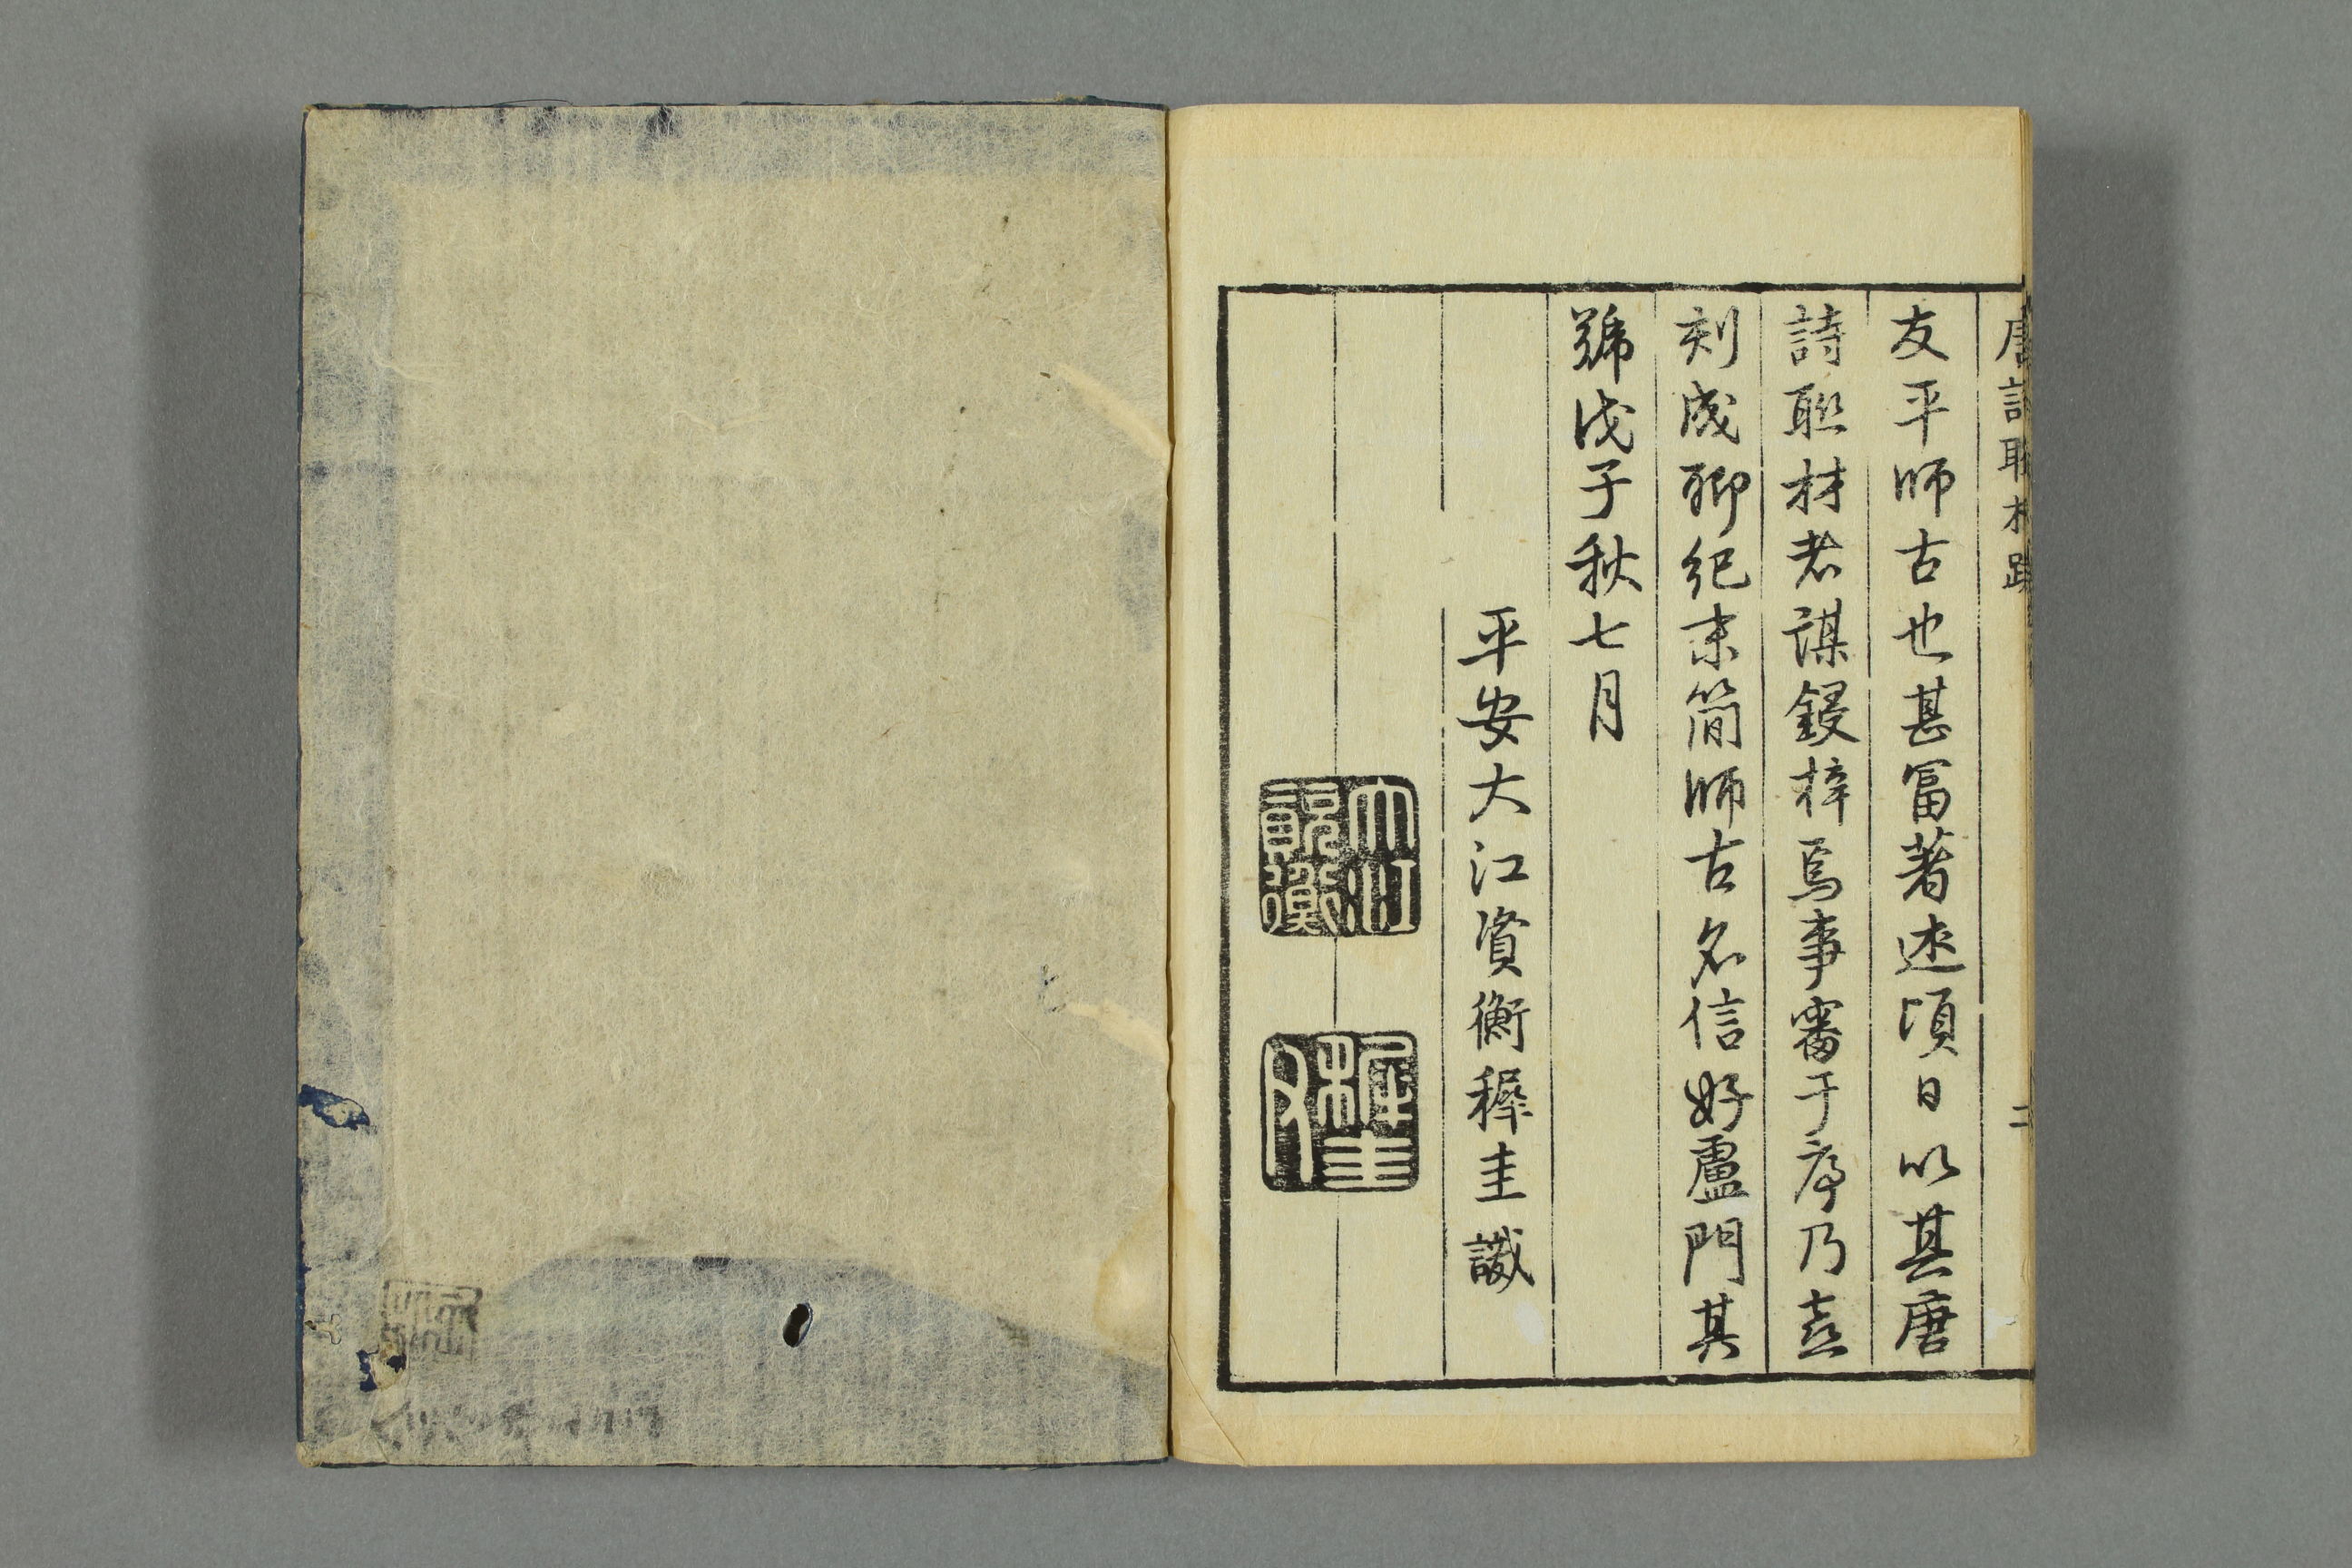 唐詩聯材跋
二
友平師古也甚冨著述頃日以其唐
詩聯材者謀鋟梓焉事審于序乃喜
刻成聊纪末简師古名信好盧門其
號戊子秋七月
平安大江資衡穉圭識
大江資衡
穉圭